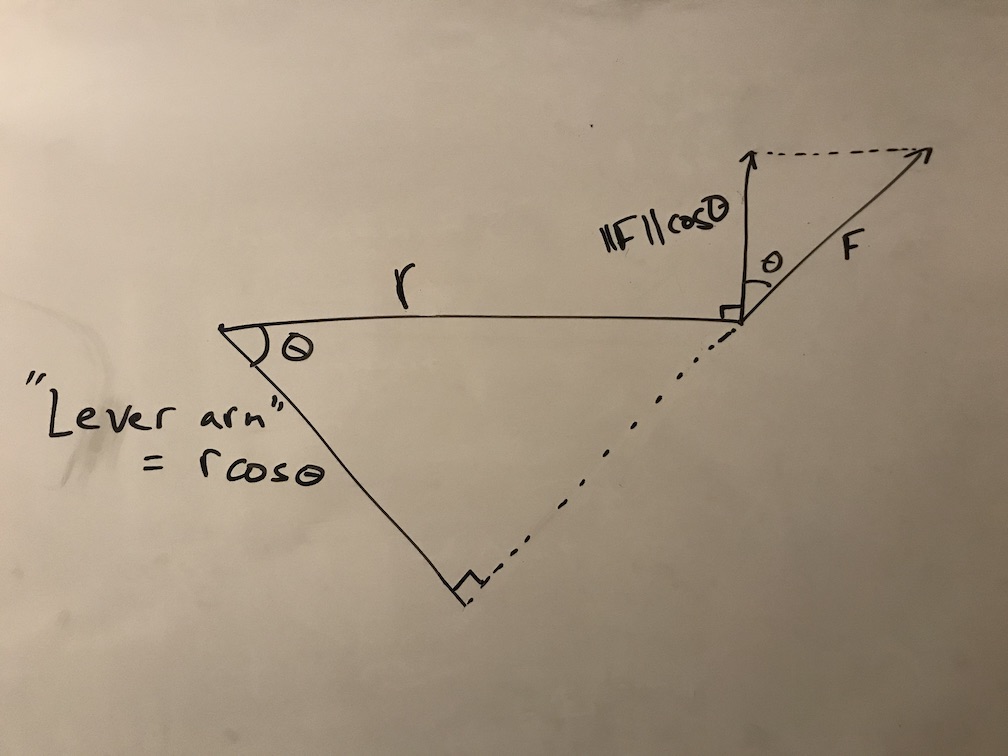 r
||F||cosθ
θ
F
θ
"Lever arm"
= rcosθ